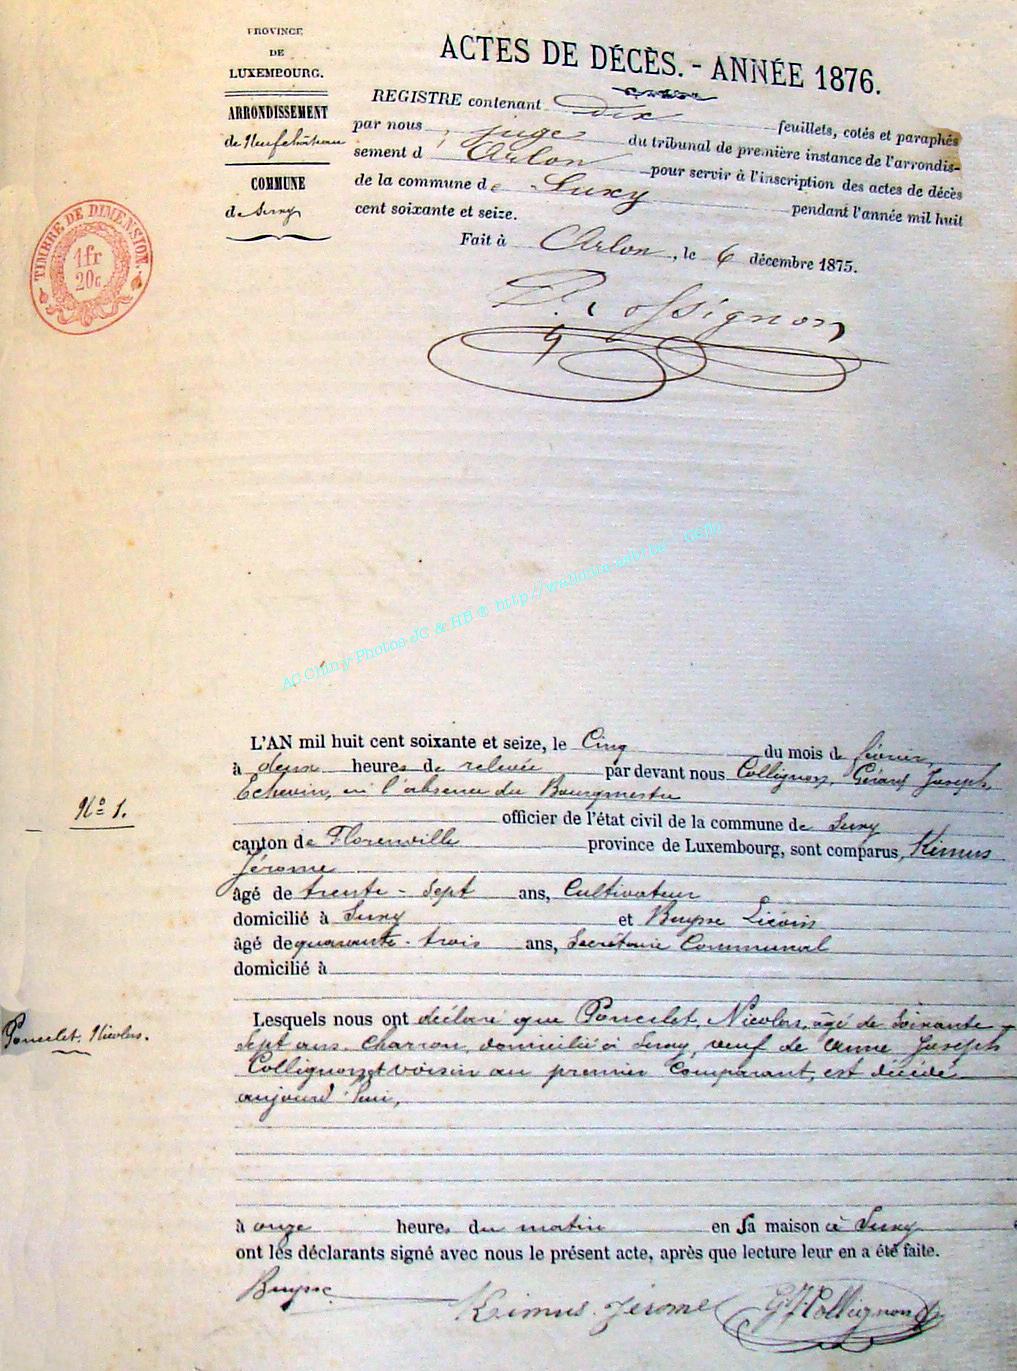 PROVINCE
DE
LUXEMBOURG.
ARRONDISSEMENT
de Neufchâteau
COMMUNE
de Suxy
TIMBRE DE DIMENSION.
1fr
20c
ACTES DE DÉCÈS. - ANNÉE 1876.
REGISTRE contenant dix feuillets, cotés et paraphés
par nous, juge du tribunal de première instance de l'arrondis-
sement d'Arlon pour servir à l'inscription des actes de décès
de la commune de Suxy pendant l'année mil huit
cent soixante et seize.
Fait à Arlon, le 6 décembre 1875.
Rossignon
AC Chiny-Photos JC & HB ® http//wallonia-asbl.be
L'AN mil huit cent soixante et seize, le Cinq du mois de février,
à deux heures de relevée par devant nous Collignon, Gérard Joseph
Echevin, en l'absence du Bourgmestre
officier de l'état civil de la commune de Suxy
N° 1.
canton de Florenville province de Luxembourg, sont comparus, Kimus
Jérome
âgé de trente-sept ans, Cultivateur
domicilié à Suxy et Buysse
âgé de quarante-trois ans, Secrétaire Communal
domicilié à
Poncelet, Nicolas.
Lesquels nous ont déclaré que Poncelet, Nicolas, âgé de Soixante-
Sept ans. Charron, domicilié à Suxy, veuf de Anne Joseph
Collignon et voisin au premier Comparant, est décédé
aujourd'hui,
à onze heures du matin en sa maison à Suxy
ont les déclarants signé avec nous le présent acte, après que lecture leur en a été faite.
Buysse Kimus Jérome GJ Collignon